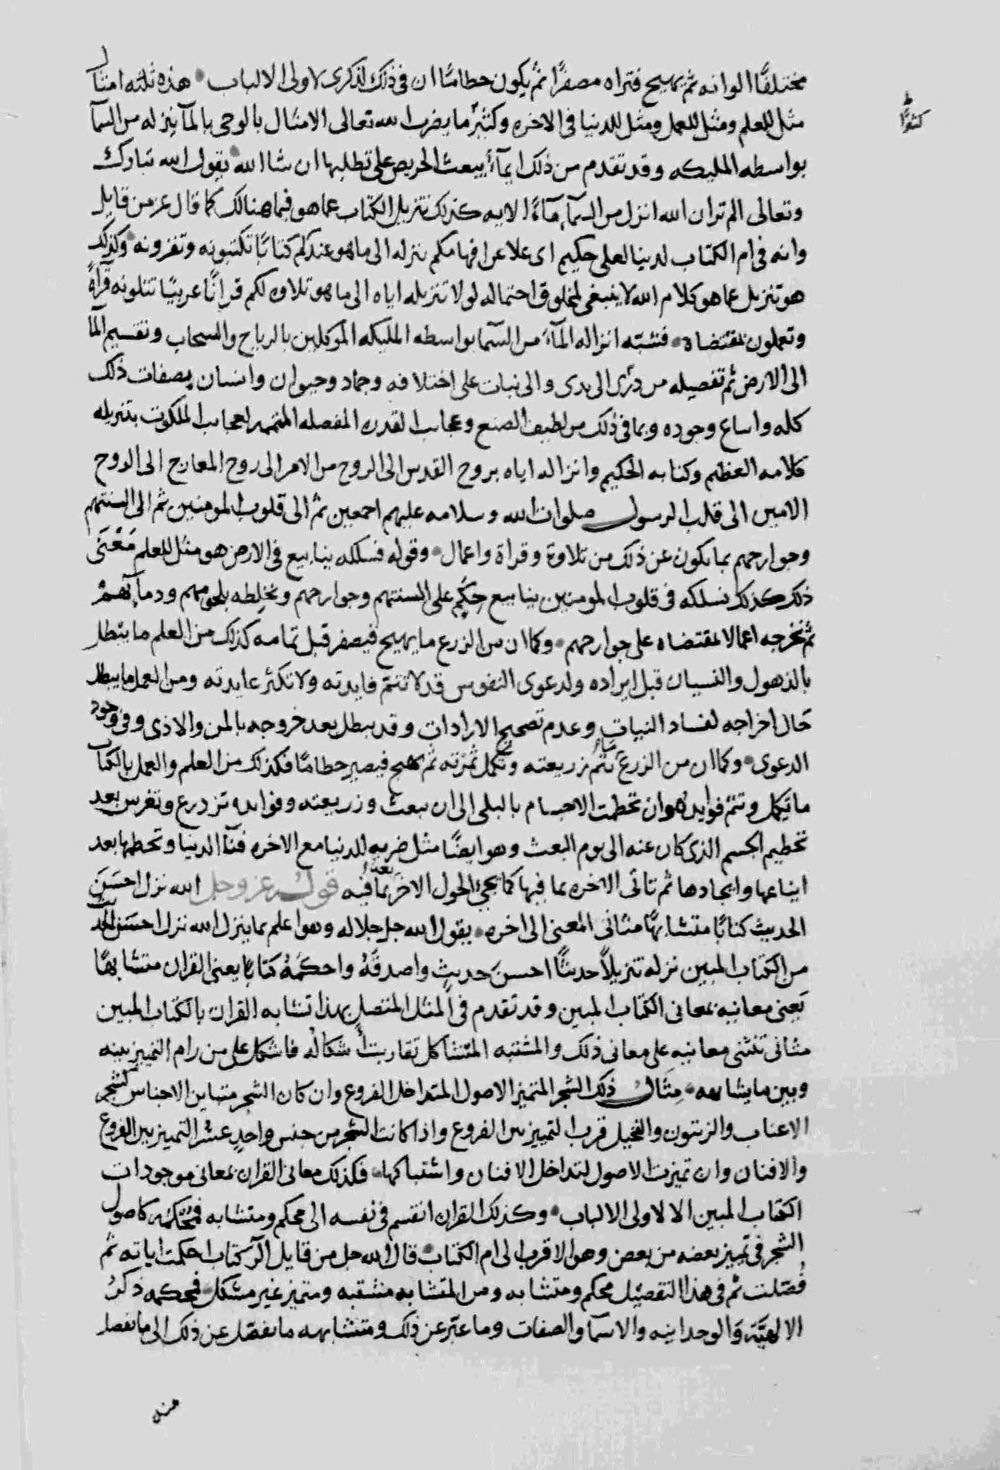 مختلفًا الوانه ثم يهيج فتراه مصفرًا ثم يكون حطامًا ان في ذلك لذكرى لاولى الالباب هذه ثلثه امثال
مثل للعلم ومثل للعمل ومثل للدنيا في الاخره وكثيرًا ما يضرب الله تعالى الامثال بالوحى بالمآ ينزله من السمآ
كثيرًا
بواسطه المليكه وقد تقدم من ذلك ايمآء يبعث الحريص على تطلبها ان شا الله يقول الله تبارك
وتعالى الم تر ان الله انزل من السمآ مآءً الايه كذلك تنزيل الكتاب عما هو فيما هنالك كما قال عز من قايل
وانه في ام الكتاب لدينا لعلى حكيم اى علا عن افهامكم ينزله الى ما هو عندكم كتابًا تكتبونه وتقرونه وكذلك
هو تنزيل عما هو كلام الله لا ينبغى لمخلوق احتماله لولا تنزيله اياه الى ما هو تلاوه لكم قرانًا عربيًا تتلونه قرآة
وتعملون بمقتضاه فشبّه انزاله المآء من السما بواسطه المليكه الموكلين بالرياح والسحاب وتقسيم المآ
الى الارض ثم تفصيله من ثرى الى يدى والى نبات على اختلافه وجماد وحيوان وانسان بصفات ذلك
كله واساع وجوده وبما في ذلك من لطيف الصنع وعجايب القدره المفصله لعجايب الملكوت بتنزيله
كلامه العظيم وكتابه الحكيم وانزاله اياه بروح القدس الى الروح من الامر الى روح المعارج الى الروح
الامين الى قلب الرسول صلوات الله وسلامه عليهم اجمعين ثم الى قلوب المومنين ثم الى السنتهم
وجوارحهم بما يكون عن ذلك من تلاوة وقراة واعمال وقوله فسلكه ينابيع في الارض هو مثل للعلم مَعْنَى
ذلك كذلك نسلكه في قلوب المومنين ينابيع حِكَم على السنتهم وجوارحهم ونخلطه بلحومهم ودمآئهم
ثم نخرجه اعمالا بمقتضاه على جوارحهم وكما ان من الزرع ما يهيج فيصفر قبل تمامه كذلك من العلم ما يبطل
بالذهول والنسيان قبل ايراده ولدعوى النفوس قد لا تتم فايدته ولا تكثر عايدته ومن العمل ما يبطل
حال اخراجه لفساد النيات وعدم تصحيح الارادات وقد يبطل بعد خروجه بالمن والاذى وفى وجود
الدعوى وكما ان من الزرع ما تتم زريعته وتكمل ثمرته ثم يهيج فيصير حطامًا فكذلك من العلم والعمل بالكتاب
ما يكمل وتتم فوايده وان تحطمت الاجسام بالبلى الى ان يبعث وزريعته وفوايده تزدرع وتغرس بعد
تحطيم الجسم الذى كان عنه الى يوم البعث وهو ايضًا مثل ضربه للدنيا مع الاخره فنآ الدنيا وتحطمها بعد
ايناعها وايجادها ثم تاتى الاخره بما فيها كما يجئ الحول الاخر بعدُ بما فيه قوله عز وجل الله نزل احسَن
الحديث كتابًا متشابهًا مثانى المعنى الى اخره يقول الله جل جلاله وهو اعلم بما ينزل الله نزل احسَن الحديث
من الكتاب المبين نزله تنزيلًا حديثًا احسنَ حديثٍ واصدقَهُ واحكمَهُ كتابًا يعنى القران متشابهًا
يَعنى معانيه بمعانى الكتاب المبين وقد تقدم في المثل المتصل بهذا تشابه القران بالكتاب المبين
مثانى تنثنى معانيه على معانى ذلك والمشتبه المتشاكل تقاربت أشكاله فاشكل على من رام التمييز بينه
وبين ما يشابهه مثال ذلك الشجر المتميز الاصول المتداخل الفروع وان كان الشجر متباين الاجناس كشجر
الاعناب والزيتون والنخيل قرب التمييز بين الفروع واذا كانت الشجر من جنس واحدٍ عسر التمييز بين الفروع
والافنان وان تميزت الاصول لتداخل الافنان واشتباكها فكذلك معانى القران بمعانى موجودات
الكتاب المبين الا لاولى الالباب وكذلك القران انقسم في نفسه الى محكم ومتشابه فمُحكَمُه كاصول
الشجر في تميز بعضه من بعض وهو الاقرب الى ام الكتاب قال الله جل من قايل الر كتاب احكمت اياته ثم
فُصّلت ثم في هذا التفصيل محكم ومتشابه ومن المتشابه مشتبه ومتميز غير مشكل فمحكمه ذكرُ
الالهيّة والوحدانيه والاسما والصفات وما عبّر عن ذلك ومتشابهه ما يفصّل عن ذلك الى ما يفصل
منه